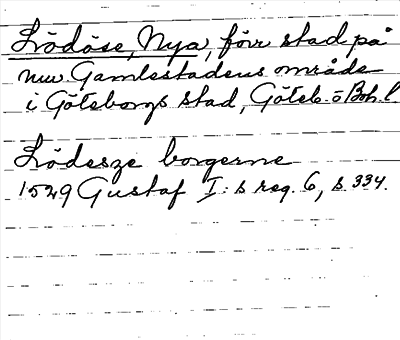 Lödöse, Nya, förr stad på
nuv. Gamlestadens område
i Göteborgs stad, Göteb. o Boh. l.
Lödesze borgerne
1529 Gustaf I:s reg. 6, s. 334.